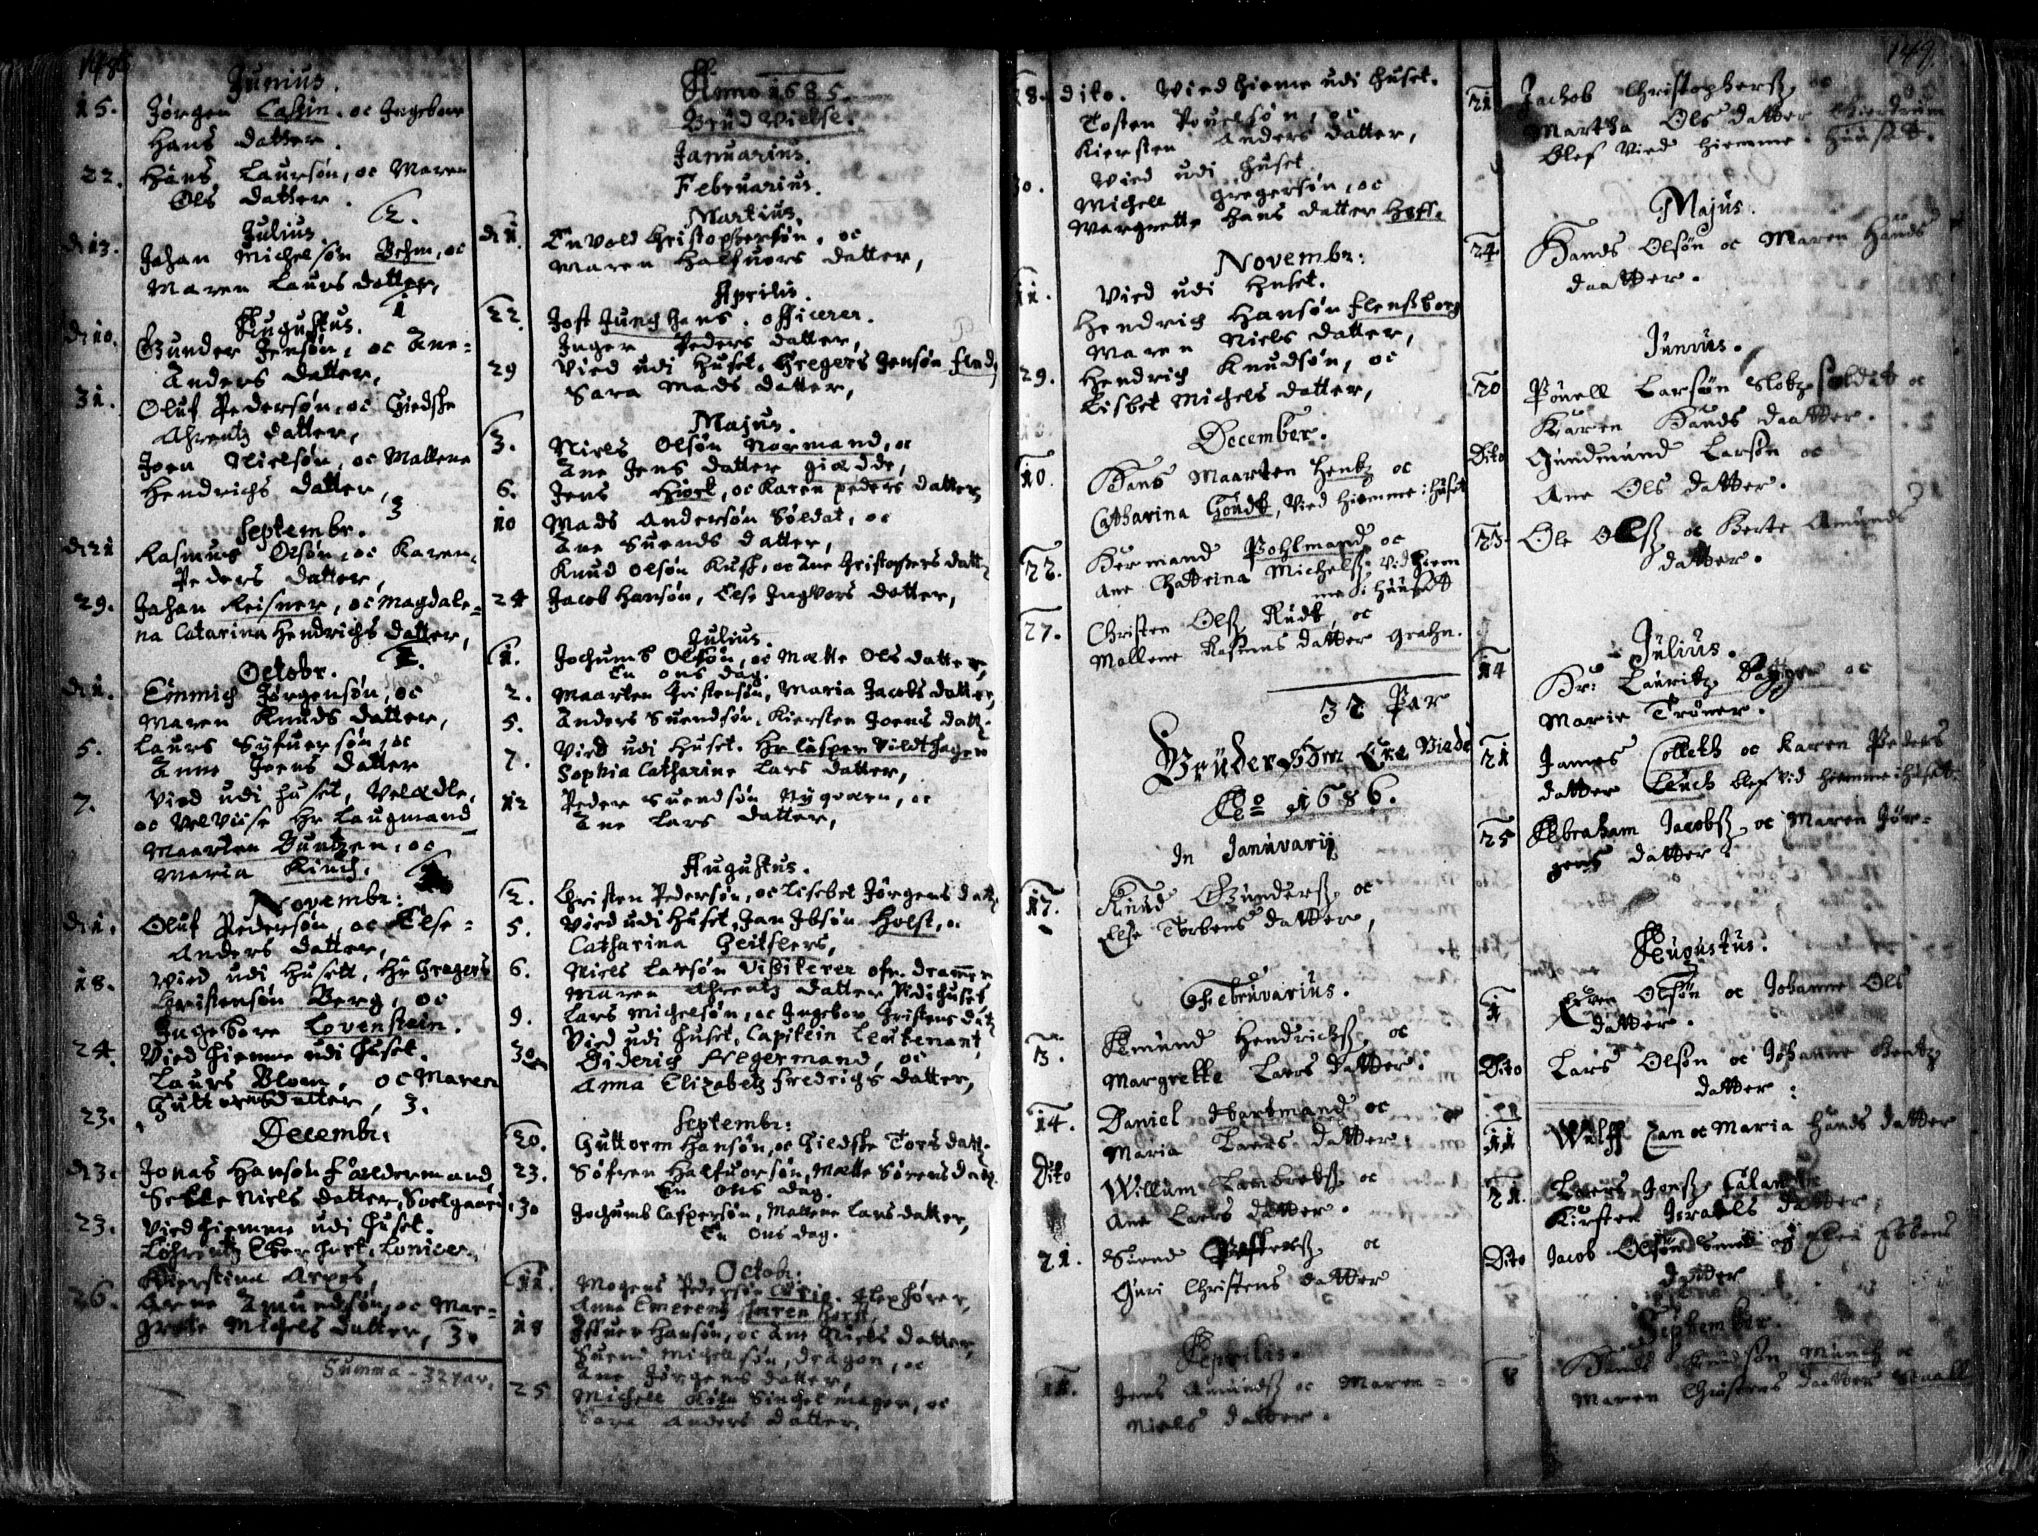 148.
Junius.
15. Jørgen Cassin. oc Ingebor
Hans datter.
22. Hans Laursøn, oc Maren
Ols datter.
2.
Julius.
d: 13. Johan Michelsøn Behm, oc
Maren Laurs datter,
1
Augustus.
d: 10. Gunder Jensøn, oc Ane=
Anders datter,
31. Oluf Pedersøn, oc Giedske
Ahrentz datter,
Joen Nielsøn, oc Mallene
Hendrichs datter,
3
Septembr.
d: 21 Rasmus Olsøn, oc Karen
Peders datter,
29. Johan Reisner, oc Magdale=
na Catarina Hendrichs datter,
2.
Octobr.
d: 1. Jørgensøn, oc
Maren Knuds datter,
5. Laurs Syfuersøn, oc
Anne Joens datter
7. Vied udi huset, Velædle,
oc Velviise Hr Laugmand
Maarten oc
Maria Kinch.
Novembr:
d: 1. Oluf Pedersøn, oc Else=
Anders datter,
18. Vied udi Husett, Hr Gregers
Christensøn Berg, oc
Ingebore Lovenstein.
24. Vied hiemme udi huset.
Laurs Bloem, oc Maren
23. Guttormsdatter, 3.
Decembr:
d: 3. Jonas Hansøn Fældermand
Niels datter, Soelgaard.
23. Vied hiemme udi huset.
Løhrentz Lonicer.
Kierstina Arpes,
26. Arne Amundsøn, oc Mar=
grete Michels datter, 3.
Summa - 32 par.
Anno 1685.
Brud Vielse.
Januarius.
Februarius.
Martius.
d: 1. Envold Christophersøn, oc
Maren Halfuors datter,
Aprilis.
22. Jost Jung Hans. officerer.
Inger Peders datter,
29 Vied udi Huset. Gregers Jensøn
Sara Mads datter,
Majus.
3. Niels Olsøn Normand, oc
Ane Jens datter giædde,
6. Jens Hiort, oc Karen peders datter,
10 Mads Andersøn Soldat, oc
Ane Suends datter,
Knud Olsøn Kuss, oc Ane Christophers datt.
24 Jacob Hansøn, Else Ingvors datter,
Julius.
1. Jochumb Olsøn, oc Mætte Ols datter,
En ons dag.
2. Maarten Christensøn, Maria Jacobs datter,
5. Anders Suendsøn, Kiersten Joens datt.
7. Vied udi Huset. Hr Casper Vildthagen
Sophia Catharine Lars datter,
12 Peder Suendsøn Nygaard, oc
Ane Lars datter,
Augustus.
2. Christen Pedersøn, oc Lisebet Jørgens datt.
5. Vied udi Huset, Jan Ibsøn Holst, oc
Catharina Geitslers,
6. Niels Larsøn Visiterer ofr. dramen
Maren Ahrentz datter Vdi huset
9. Lars Michelsøn, oc Ingebor Christens datt.
Vied udi huset, Capitein Leutenant,
30 Diderich Fregermand, oc
Anna Elizabetz Fredrichs datter,
Septembr:
20. Guttorm Hansøn, oc Giedske Tors datt.
23. Søfren Halfuorsøn, Mætte Sørens datt.
En ons dag.
30 Jochumb Caspersøn, Mallene Lars datter,
En ons dag.
Octobr:
11. Mogens Pedersøn
Anna
18 Iffuer Hansøn, oc Ane Niels datter,
Suend Michelsøn, dragon, oc
Ane Jørgens datter,
25 Michell mager, oc
Sara Anders datter.
149.
28. dito. Vied hieme udi huset.
Tosten Pouelsøn, oc
Kiersten Anders datter,
Vied udi huset
30. Michell Gregersøn, oc
Margrette Hans datter Hoff.
Novembr:
11. Vied udi Huset.
Hendrich Hansøn Flensborg
Maren Niels datter,
29. Hendrich Knudsøn, oc
Lisbet Michels datter,
December.
10. Hans Maarten Hentz oc
Catharina Goudt, Vied hiemme i huset
22. Hermand Pohlmand oc
Ane Chattrina Michels Vid hiem
me i huusett
27. Christen Ols Rudt, oc
Mallene Rasmus datter Grahn.
37 Par
Brüder Som Ere Viede
Ao 1686.
In Januvarij
17. Knud Gunders oc
Else Torbens datter,
Februvarius.
3. Amund Hendrichs oc
Margrette Laers datter.
14. Daniel Hartmand oc
Maria Laers datter.
Dito Willum Lambrets oc
Ane Laers datter.
21. Suend oc
Guri Christens datter
Aprilis.
11. Jens Amunds oc Maren=
Niels datter.
21 Jachob Christophers oc
Martha Ols datter
Blef Vied hiemme i Huuset.
Majus.
24. Hands Olsøn oc Maren Hands
daatter.
Junius.
20 Pouell Larsøn Slotz soldat oc
Karen Hands daatter.
Dito Gundmund Larsøn oc
Ane Ols datter.
23. Ole Ols oc Berte Amunds
datter.
Julius.
14 Hr: Lauritz oc
Marie Trøner.
21 James Colleth oc Karen Peders
datter Leuch blef Vid hiemme i Huset.
25 Abraham Jacobs oc Maren Jør=
gens datter.
Augustus.
1 Even Olsøn oc Johanne Ols
datter.
Dito Lars Olsøn oc Johanne Bentz
datter:
11 Wulff Can oc Maria Hands datter
21. Laers Jons
Kirsten Israels datter,
Dito Jacob Olsøn Smed og Ebbens
datter
September.
8 Hands Knudsøn Munch oc
Maren Christens daatter